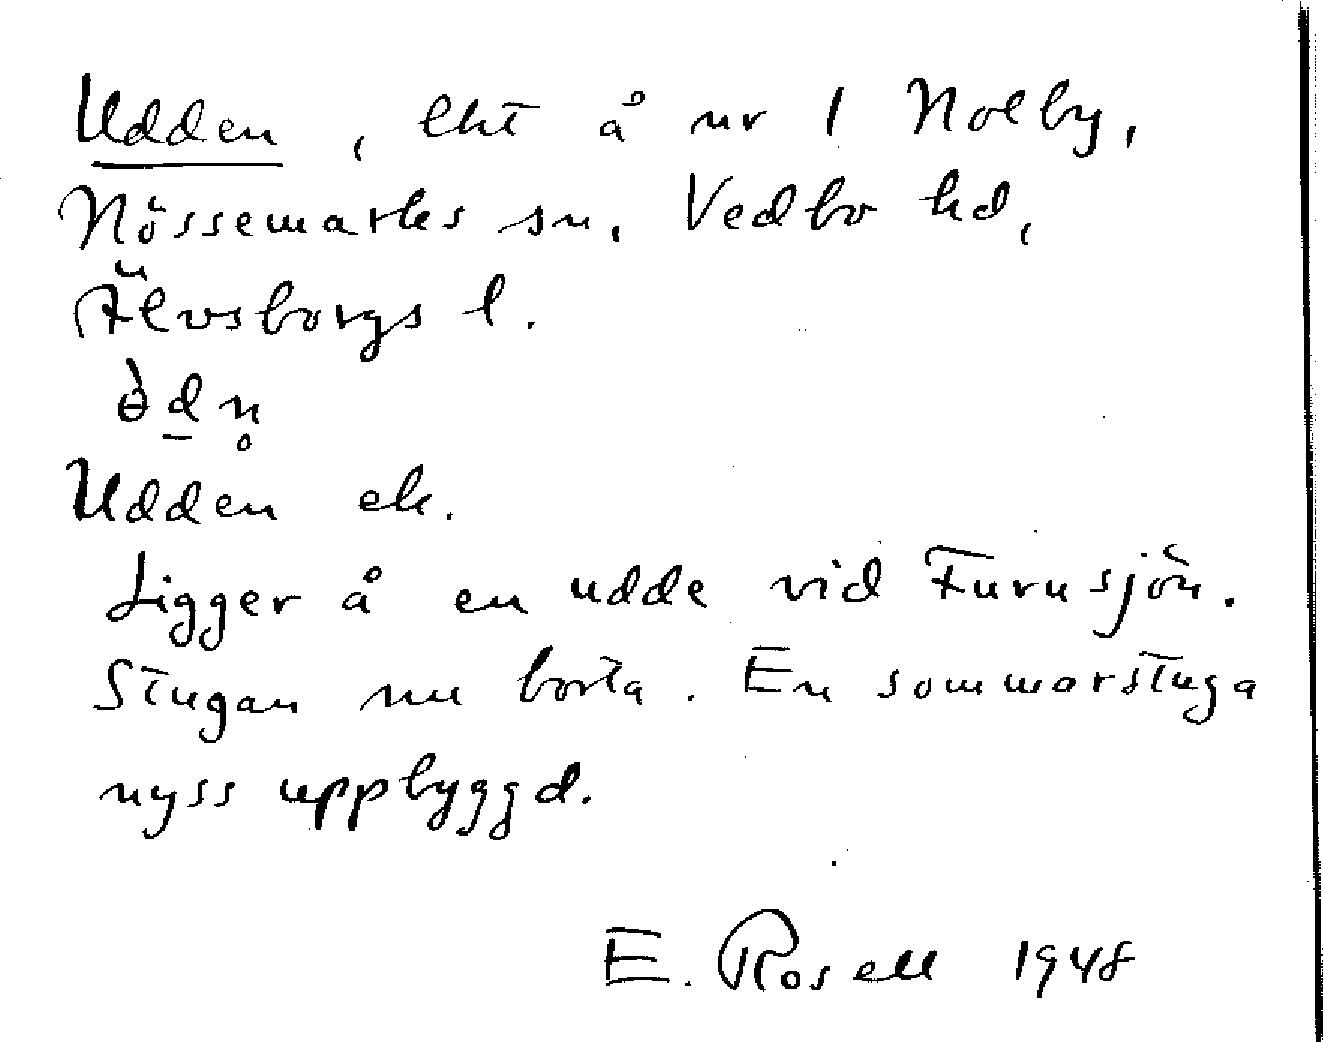 Udden, lht å nr 1 Nolby,
Nössemarks sn, Vedbo hd,
Älvsborgs l.
ɵ̀d̲n̥
Udden ek.
Ligger å en udde vid Furusjön.
Stugan nu borta. En sommarstuga
nyss uppbyggd.
E. Rosell 1948